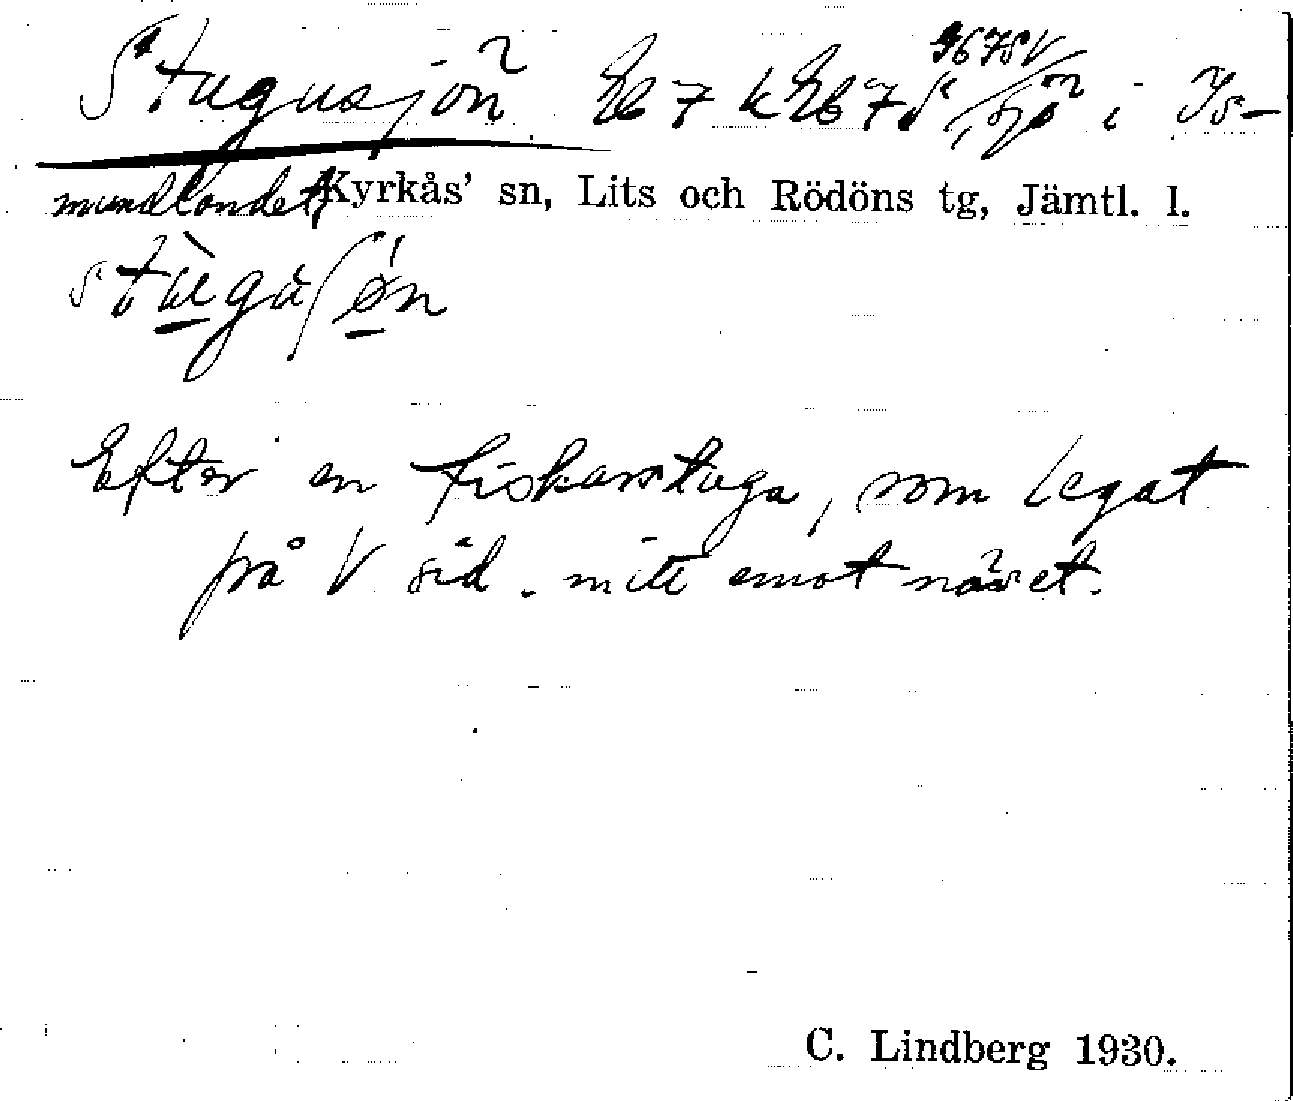 Stugusjön Eb 7 k Eb 7 d, sjö i Is-
mundlandet, Kyrkås' sn, Lits och Rödöns tg, Jämtl. l.
stùgàʃø̀n
Efter en fiskarstuga, som legat
på V sid. mitt emot näset.
C. Lindberg 1930.